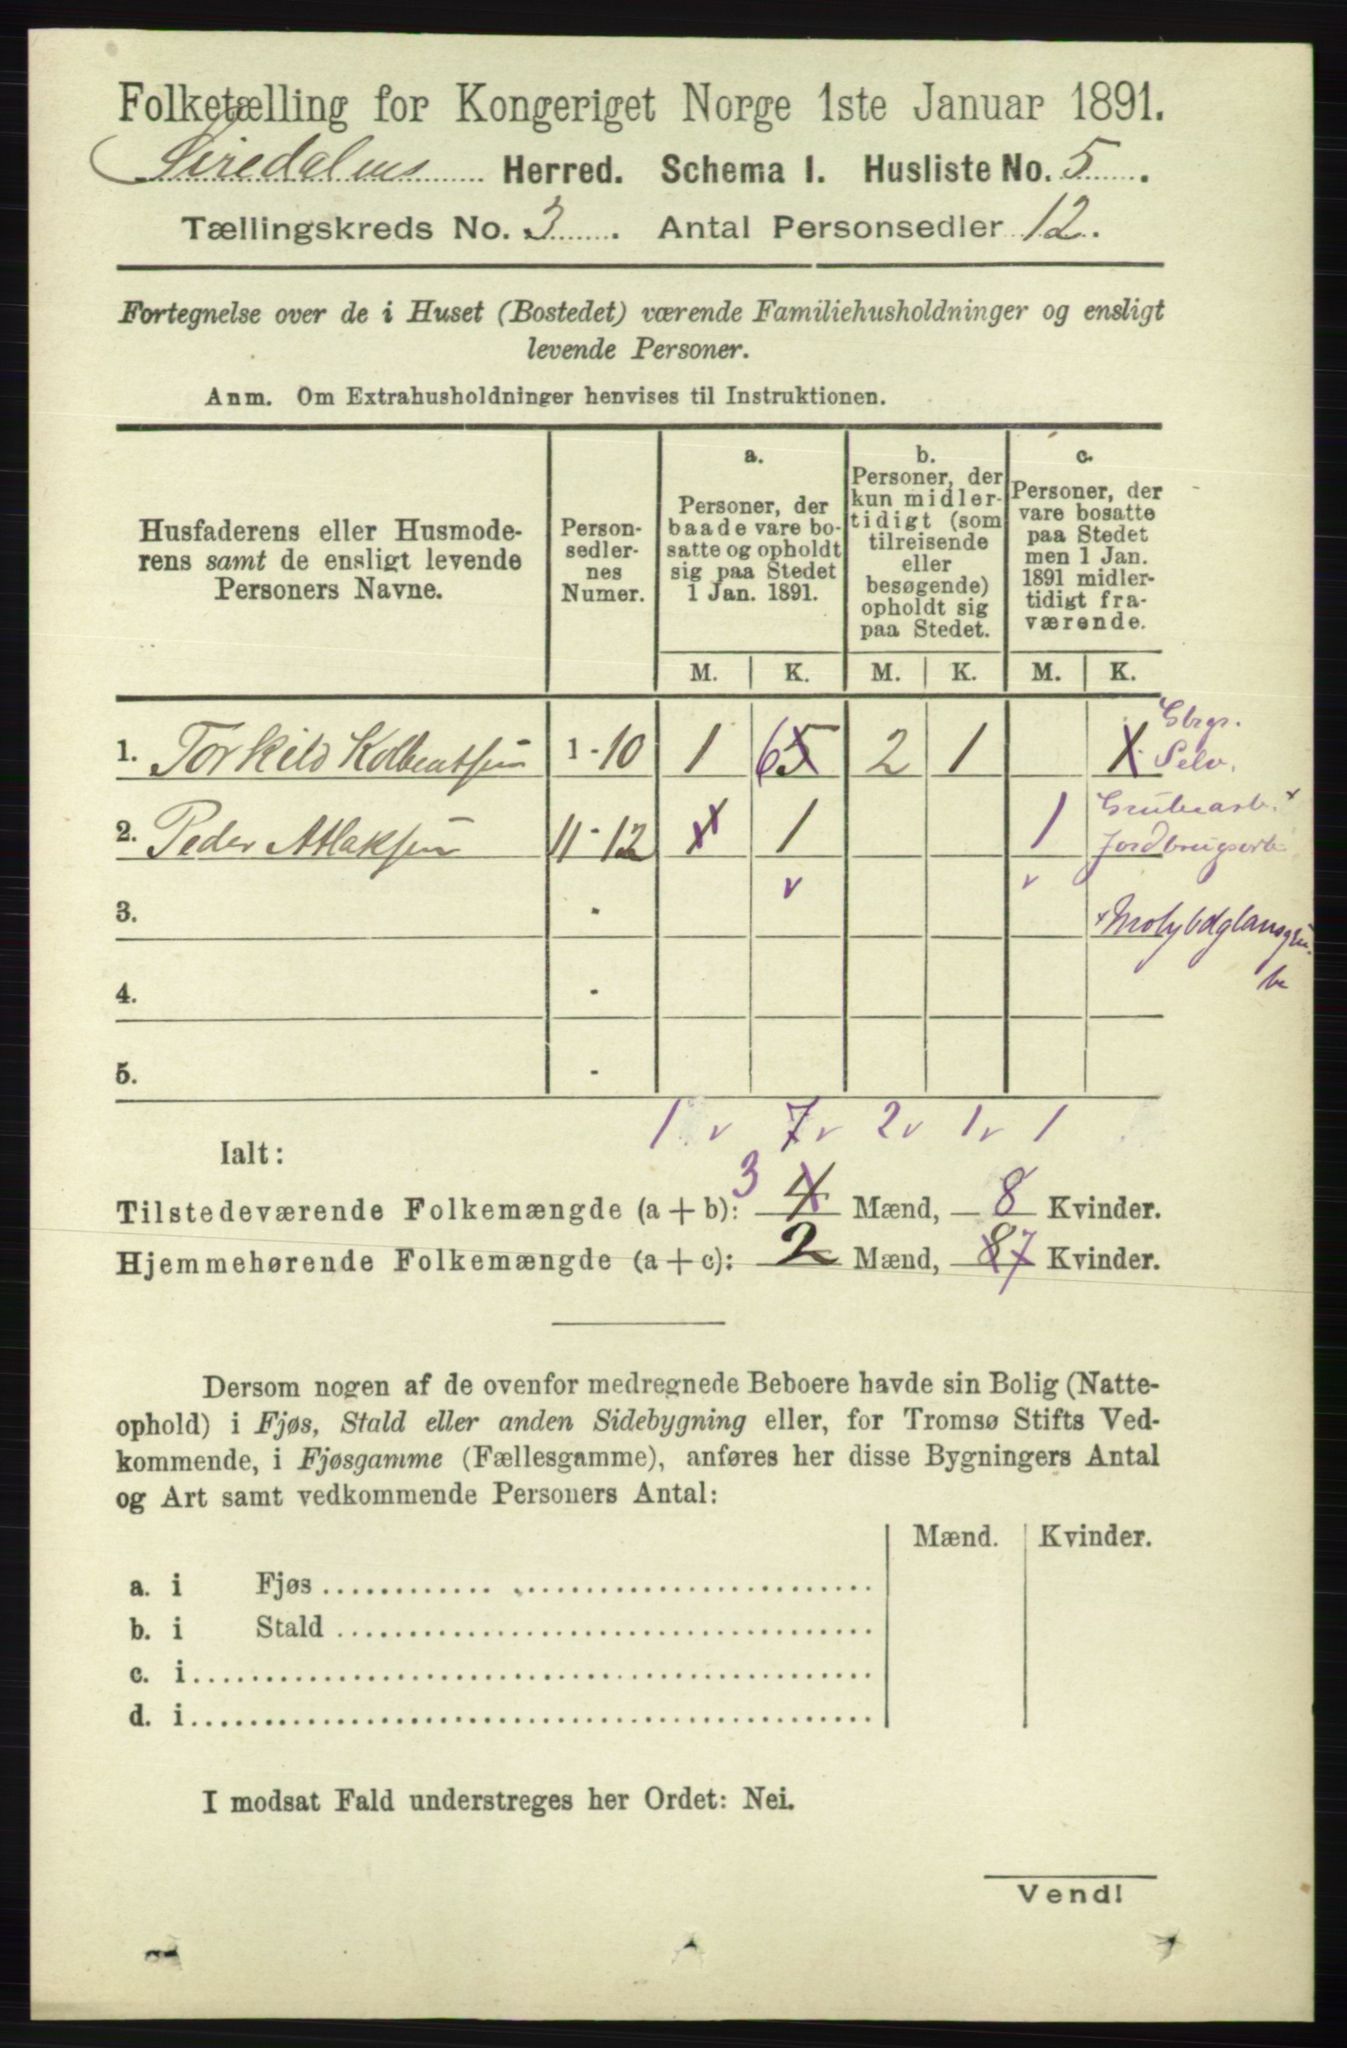 Folketælling for Kongeriget Norge 1ste Januar 1891.
Siredalens Herred. Schema I. Husliste No. 5.
Tællingskreds No. 3. Antal Personsedler 12.
Fortegnelse over de i Huset (Bostedet) værende Familiehusholdninger og ensligt
levende Personer.
Anm. Om Extrahusholdninger henvises til Instruktionen.
Husfaderens eller Husmode-
rens samt de ensligt levende
Personers Navne.
Person-
sedler-
nes
Numer.
a.
Personer, der
baade vare bo-
satte og opholdt
sig paa Stedet
1 Jan. 1891.
b.
Personer, der
kun midler-
tidigt (som
tilreisende
eller
besøgende)
opholdt sig
paa Stedet.
c.
Personer, der
vare bosatte
paa Stedet
men 1 Jan.
1891 midler-
tidigt fra-
værende.
M. K. M. K. M. K.
1. Torkild Kolbentsen 1-10 1 65 2 1 1 Gbrgr.
Selv.
2. Peder Atlaksen 11-12 1 1 1 Grubearb. x
Jordbrugsarb.
3. -
x Molybdglansgru-
be
4. -
5. -
1 v 7 v 2 v 1 v 1
Ialt:
Tilstedeværende Folkemængde (a + b): 3 4 Mænd, 8 Kvinder.
Hjemmehørende Folkemængde (a + c): 2 Mænd, 87 Kvinder.
Dersom nogen af de ovenfor medregnede Beboere havde sin Bolig (Natte-
ophold) i Fjøs, Stald eller anden Sidebygning eller, for Tromsø Stifts Ved-
kommende, i Fjøsgamme (Fællesgamme), anføres her disse Bygningers Antal
og Art samt vedkommende Personers Antal:
Mænd. Kvinder.
a. i Fjøs
b. i Stald
c. i
d. i
I modsat Fald understreges her Ordet: Nei.
Vend!